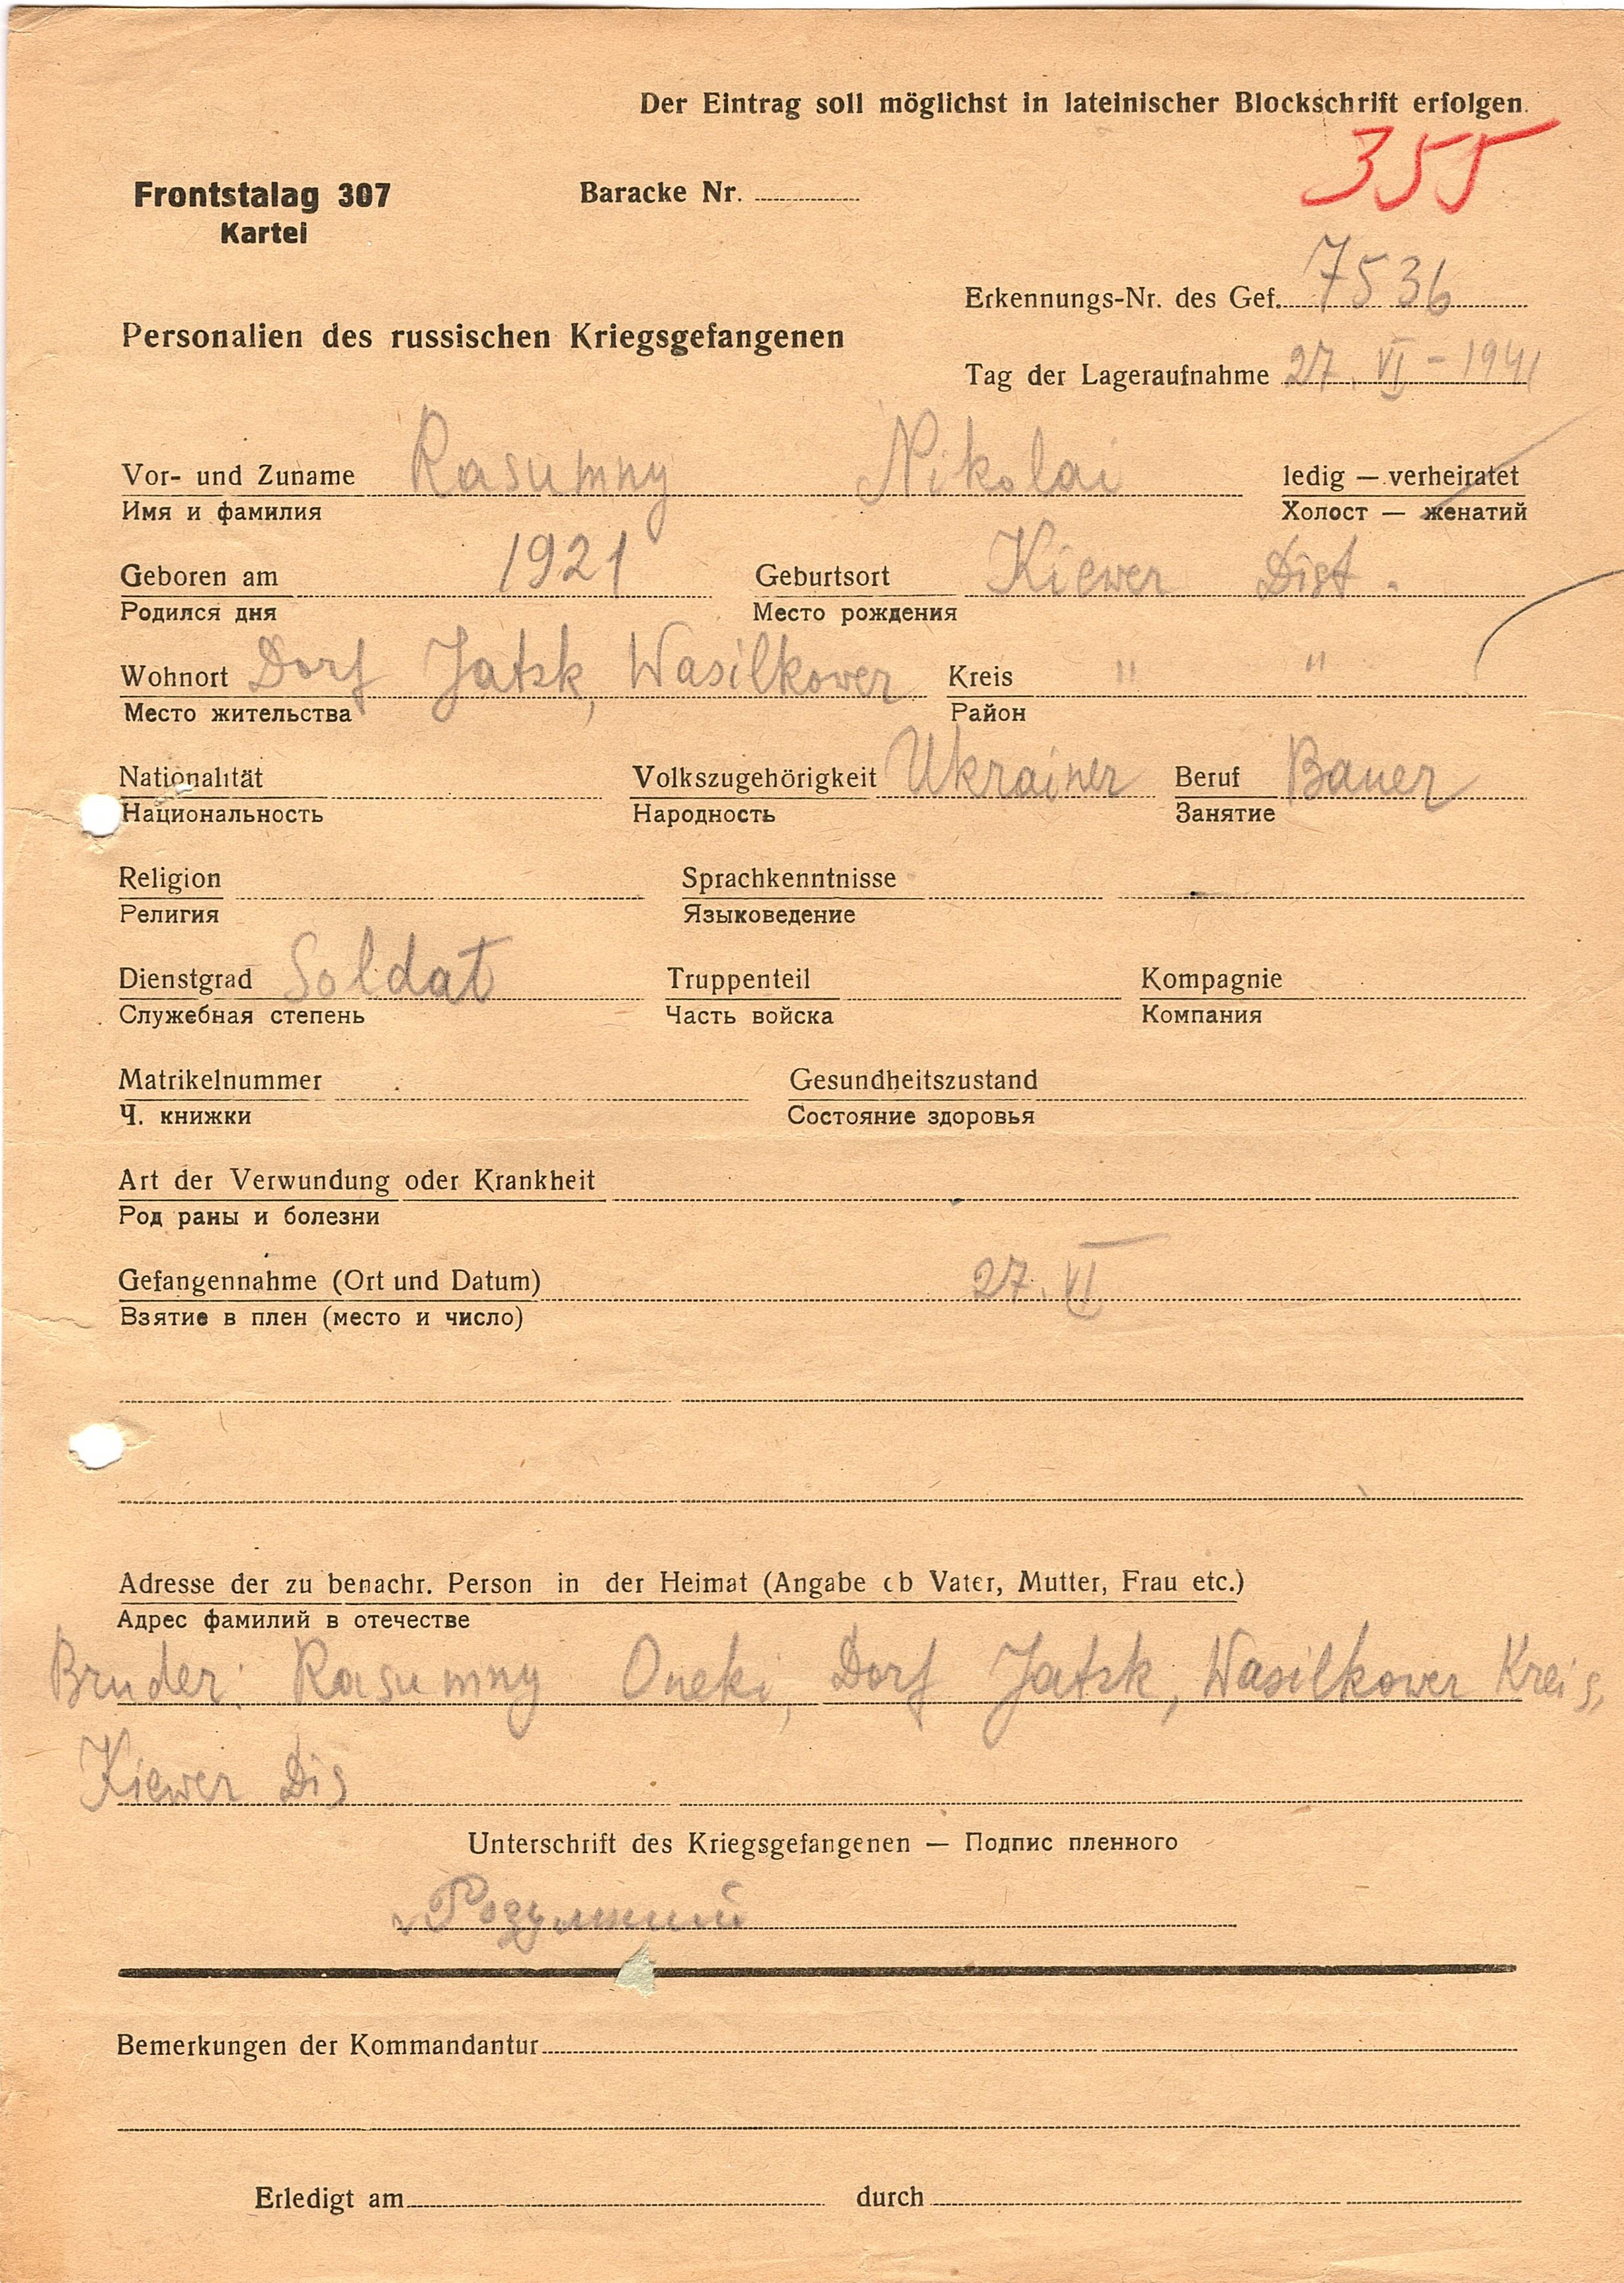 Der Eintrag soll möglichst in lateinischer Blockschrift erfolgen.
355
Frontstalag 307 Baracke Nr.
Kartei
Erkennungs-Nr. des Gef. 7536
Personalien des russischen Kriegsgefangenen
Tag der Lageraufnahme 27. VI - 1941
Vor- und Zuname Rasumny Nikolai ledig — verheiratet
Имя и фамилия Холост — женатий
Geboren am 1921 Geburtsort Kiewer Dist.
Родился дня Место рождения
Wohnort Dorf Jatsk, Wasilkower Kreis " "
Место жительства Район
Nationalität Volkszugehörigkeit Ukrainer Beruf Bauer
Национальность Народность Занятие
Religion Sprachkenntnisse
Религия Языковедение
Dienstgrad Soldat Truppenteil Kompagnie
Служебная степень Часть войска Компания
Matrikelnummer Gesundheitszustand
Ч. книжки Состояние здоровья
Art der Verwundung oder Krankheit
Род раны и болезни
Gefangennahme (Ort und Datum) 27. VI
Взятие в плен (место и число)
Adresse der zu benachr. Person in der Heimat (Angabe ob Vater, Mutter, Frau etc.)
Адрес фамилий в отечестве
Bruder: Rasumny Oneki, Dorf Jatsk, Wasilkower Kreis,
Kiewer Dis
Unterschrift des Kriegsgefangenen — Подпис пленного
Розумний
Bemerkungen der Kommandantur
Erledigt am durch